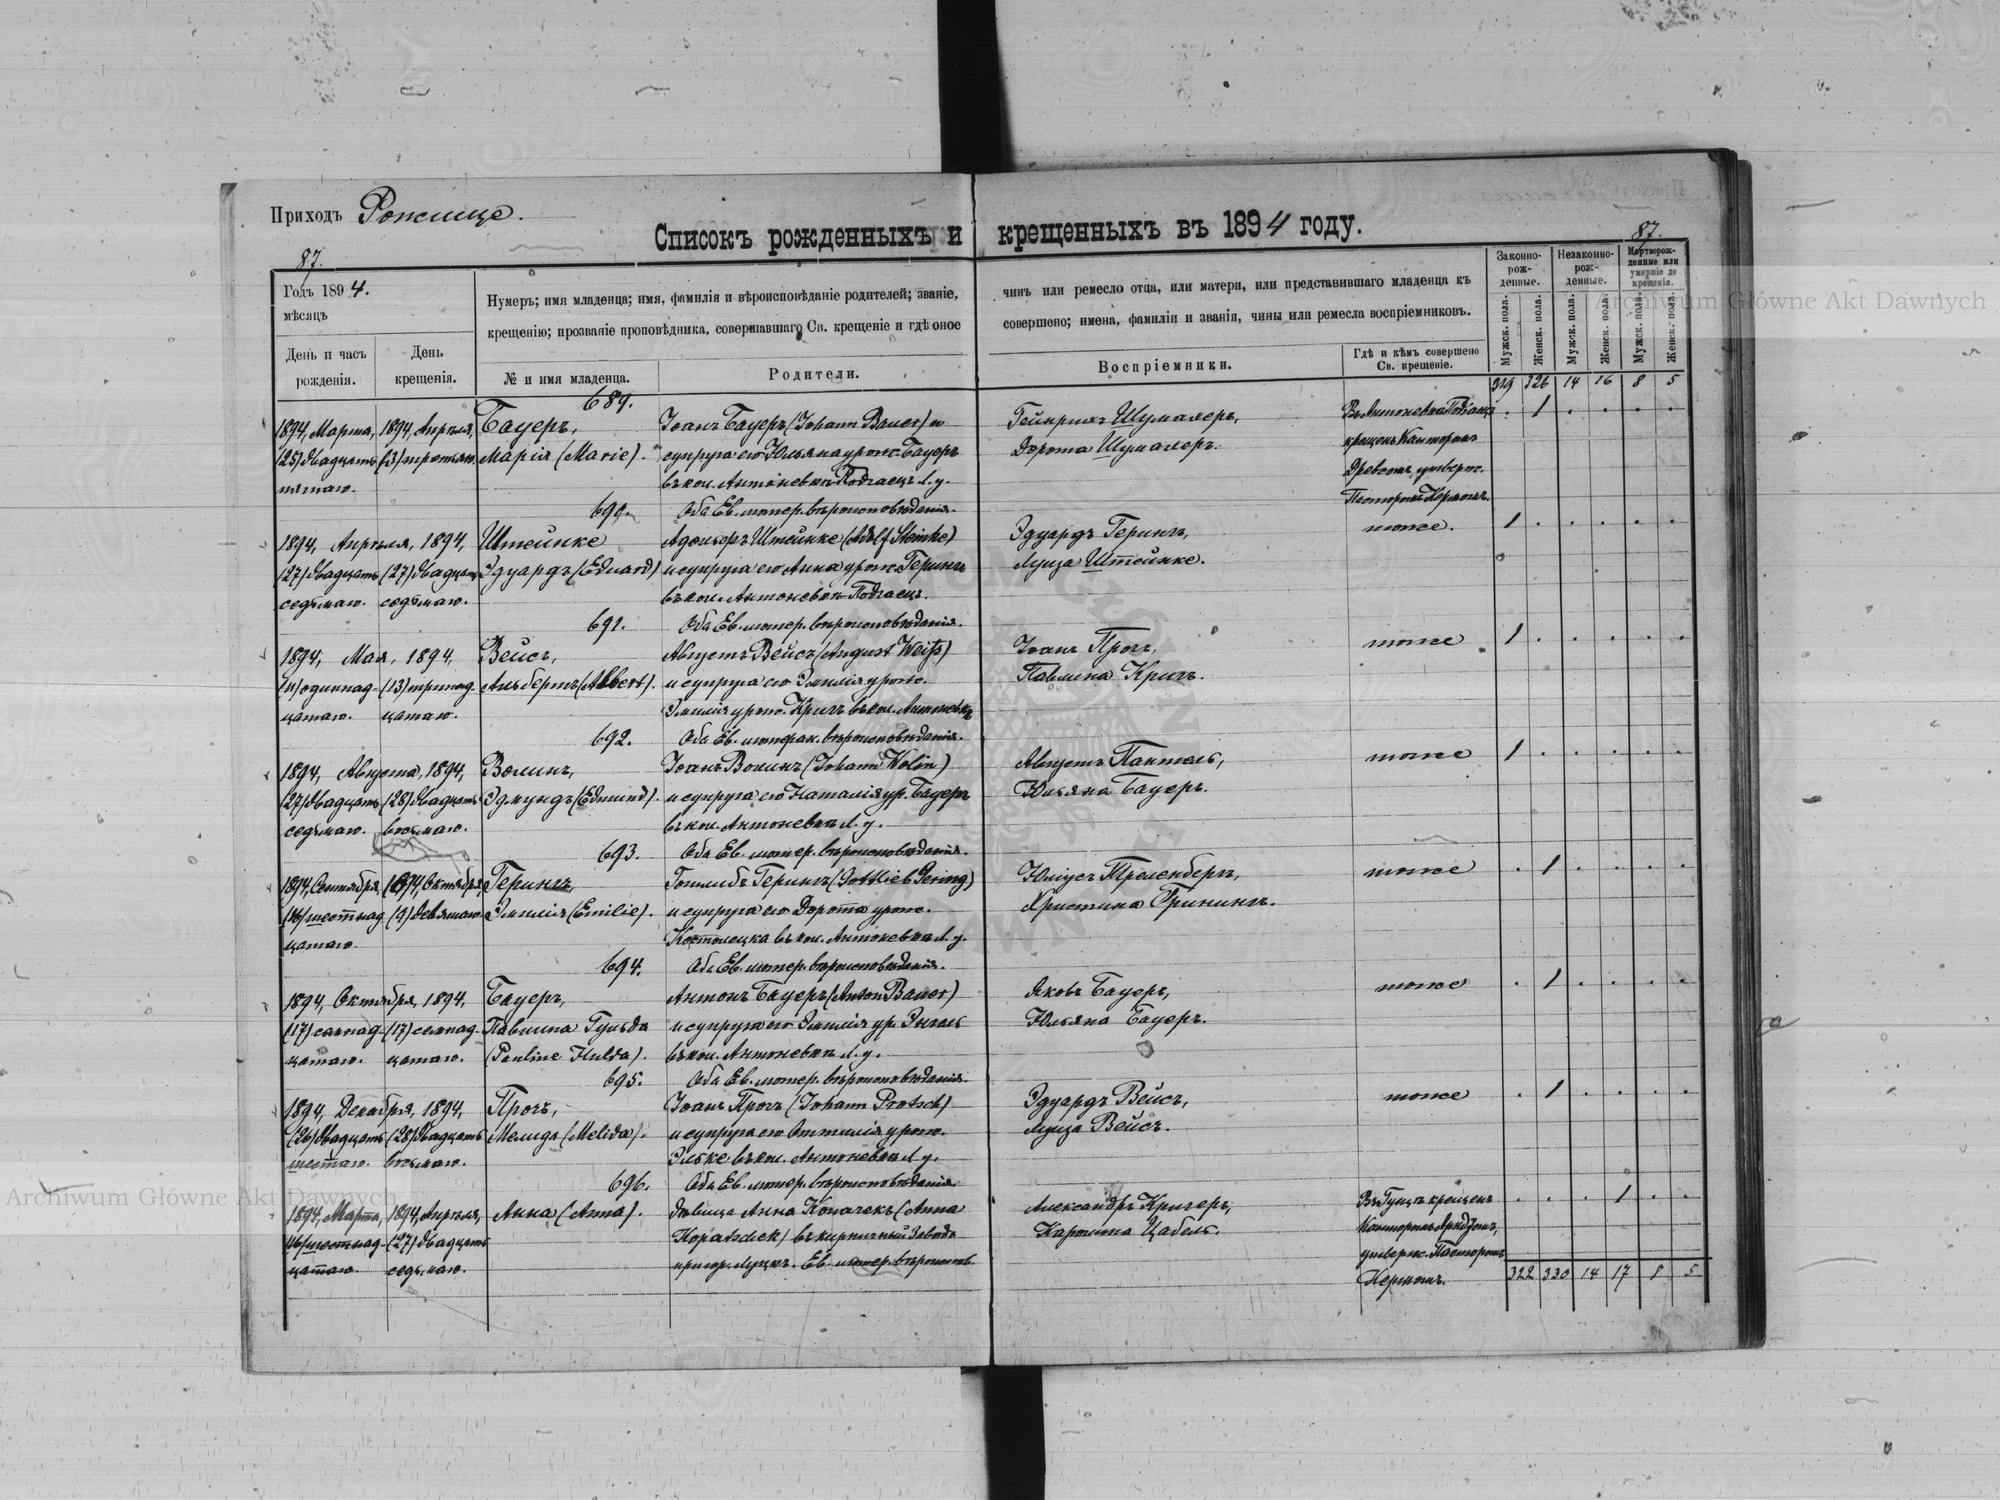 Приходъ Рожище.
Списокъ рожденныхъ и крещенныхъ въ 1894 году.
87.
87.
Годъ 1894.
мѣсяцъ
День и часъ рожденія.
День крещенія.
Нумеръ; имя младенца; имя, фамилія и вѣроисповѣданіе родителей; званіе,
крещенію; прозваніе проповѣдника, совершавшаго Св. крещеніе и гдѣ оное
№ и имя младенца.
Родители.
чинъ или ремесло отца, или матери, или представившаго младенца къ
совершено; имена, фамиліи и званія, чины или ремесла воспріемниковъ.
Воспріемники.
Гдѣ и кѣмъ совершено Св. крещеніе.
Законно-рож-денные.
Незаконно-рож-денные.
Мертворож-денные или умершіе до крещенія.
Мужск. пола.
Женск. пола.
Мужск. пола.
Женск. пола.
Мужск. пола.
Женск. пола.
319 326 14 16 8 5
689.
1894, Марта, 1894, Апрѣля, Бауеръ, Іоанъ Бауеръ (Johann Bauer) и Гейнрихъ Шумахеръ, Въ Антоневкѣ Подгаецъ . 1 . . . .
(25) двадцать (3) третьяго. Марія (Marie). супруга его Юльяна урож. Бауеръ Дорота Шумахеръ. крещенъ Канторомъ
пятаго. въ кол. Антоневкѣ Подгаецъ Л. у. утверж.
690. Оба Ев. лютер. вѣроисповѣданія. Пасторомъ
1894, Апрѣля, 1894, Штейнке Адольфъ Штейнке (Adolf Steinke) Эдуардъ Герингъ, тоже. 1 . . . . .
(27) двадцать (27) двадцать Эдуардъ (Eduard) и супруга его Анна урож. Герингъ Луиза Штейнке.
седьмаго. седьмаго. въ кол. Антоневкѣ Подгаецъ.
691. Оба Ев. лютер. вѣроисповѣданія.
1894, Мая, 1894, Вейсъ, Августъ Вейсъ (August Weiß) Іоанъ Прочъ, тоже 1 . . . . .
(11) одиннад- (13) тринад- Альбертъ (Albert). и супруга его Эмилія урож. Павлина Кригъ.
цатаго. цатаго. Эмилія урож. Кригъ въ кол. Антоневкѣ
692. Оба Ев. лютеран. вѣроисповѣданія.
1894, Августа, 1894, Волинъ, Іоанъ Волинъ (Johann Wolin) Августъ Панталь, тоже 1 . . . . .
(27) двадцать (28) двадцать Эдмундъ (Edmund). и супруга его Наталія ур. Бауеръ Юльяна Бауеръ.
седьмаго. восьмаго. въ кол. Антоневкѣ Л. у.
693. Оба Ев. лютер. вѣроисповѣданія.
1894, Сентября, 1894, Октября, Герингъ, Готлибъ Герингъ (Gottlieb Gering) Юліусъ Треленбергъ, тоже . 1 . . . .
(16) шестнад- (9) девятаго. Эмилія (Emilie). и супруга его Дорота урож. Христина Гринингъ.
цатаго. въ кол. Антоневкѣ Л. у.
694. Оба Ев. лютер. вѣроисповѣданія.
1894, Октября, 1894, Бауеръ, Антонъ Бауеръ (Anton Bauer) Яковъ Бауеръ, тоже . 1 . . . .
(17) семнад- (17) семнад- Павлина Гульда и супруга его Эмилія ур. Энгель Юльяна Бауеръ.
цатаго. цатаго. (Pauline Hulda). въ кол. Антоневкѣ Л. у.
695. Оба Ев. лютер. вѣроисповѣданія.
1894, Декабря, 1894, Прочъ, Іоанъ Прочъ (Johann Protsch) Эдуардъ Вейсъ, тоже . 1 . . . .
(26) двадцать (28) двадцать Мелида (Melida). и супруга его Оттилія урож. Луиза Вейсъ.
шестаго. восьмаго. Эльке въ кол. Антоневкѣ Л. у.
696. Оба Ев. лютер. вѣроисповѣданія.
1894, Марта, 1894, Апрѣля, Анна (Anna). дѣвица Анна Копачекъ (Anna Александръ Кригеръ, крещенъ . . . 1 . .
(16) шестнад- (27) двадцать Kopatschek) въ кирпичный заводъ Каролина Цабель. Канторомъ
цатаго. седьмаго. пригор. Луцкъ. Ев. лютер. вѣроисповѣд. утверж. Пасторомъ
322 330 14 17 8 5
Archiwum Główne Akt Dawnych
Archiwum Główne Akt Dawnych